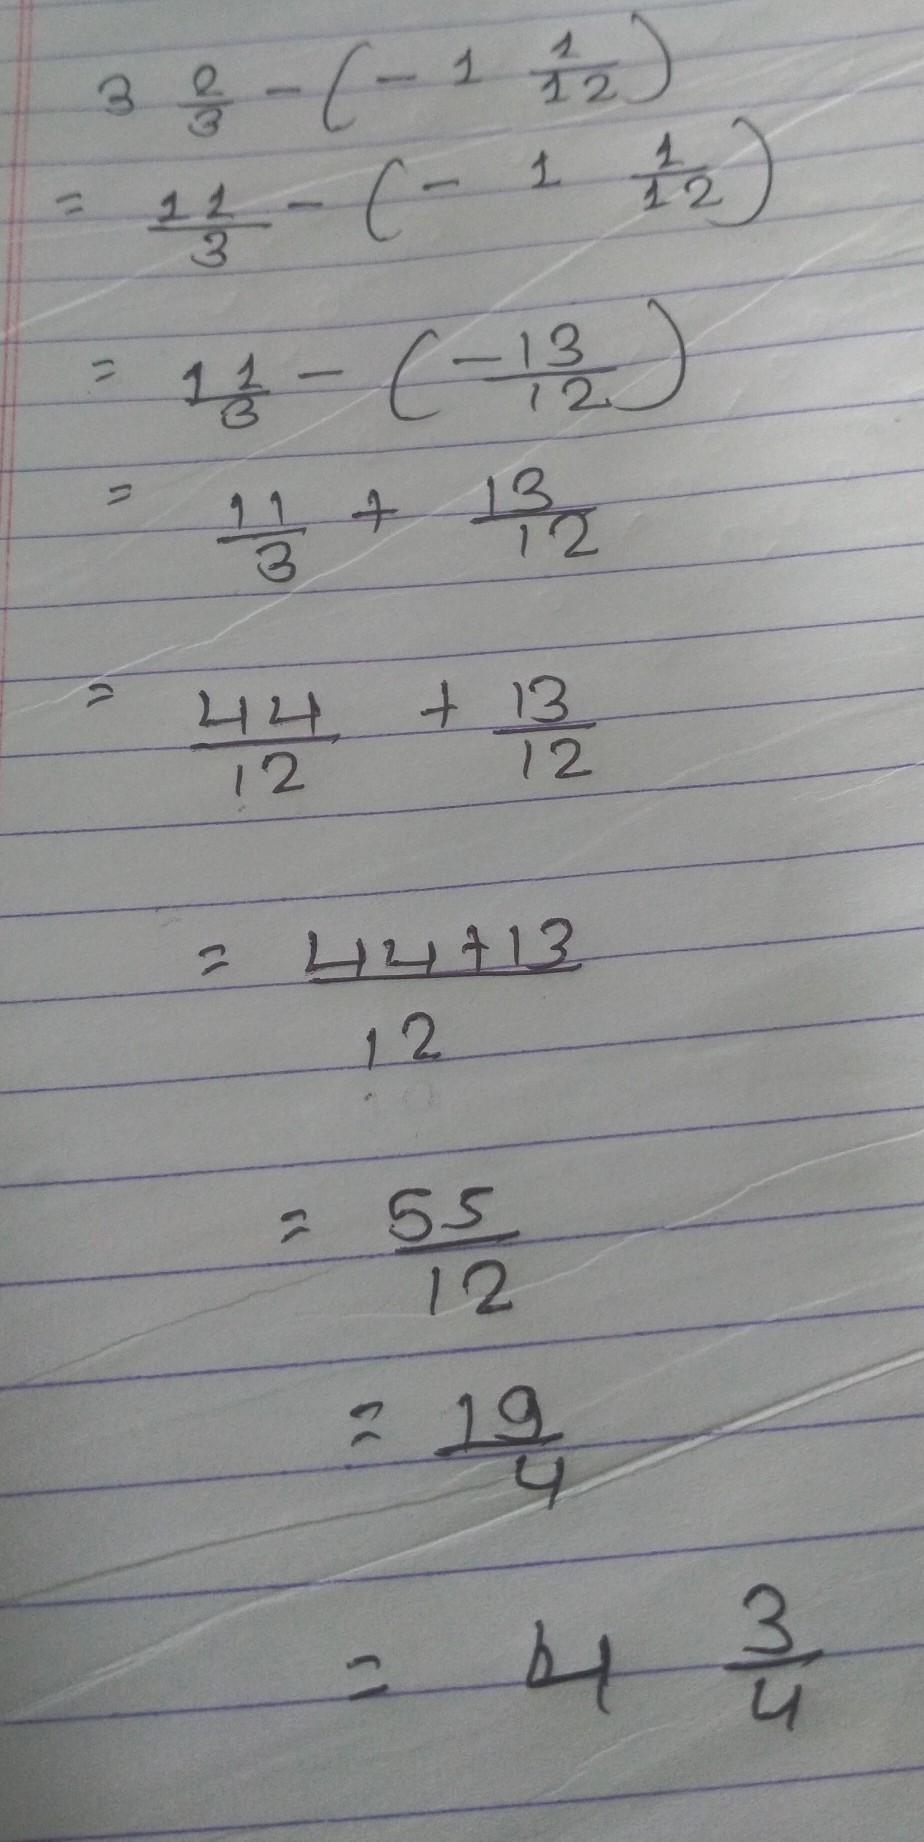 3 2/3 - (- 1 1/12)
= 11/3 - (- 1 1/12)
= 11/3 - (-13/12)
= 11/3 + 13/12
= 44/12 + 13/12
= 44+13/12
= 55/12
= 19/4
= 4 3/4